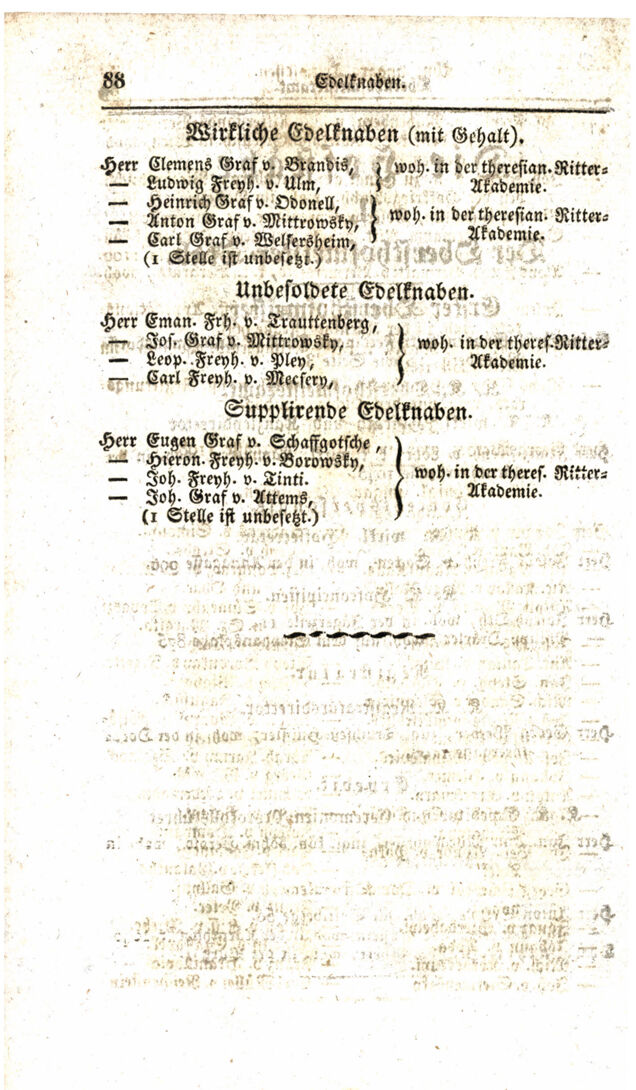 88 Edelknaben.
Wirkliche Edelknaben (mit Gehalt).
Herr Clemens Graf v. Brandis, woh. in der theresian. Ritter-
— Ludwig Freyh. v. Ulm, Akademie.
— Heinrich Graf v. Odonell,
— Anton Graf v. Mittrowsky, woh. in der theresian. Ritter-
— Carl Graf v. Welsersheim, Akademie.
(1 Stelle ist unbesetzt.)
Unbesoldete Edelknaben.
Herr Eman. Frh. v. Trauttenberg,
— Jos. Graf v. Mittrowsky, woh. in der theres. Ritter-
— Leop. Freyh. v. Pley, Akademie.
— Carl Freyh. v. Mecsery,
Supplirende Edelknaben.
Herr Eugen Graf v. Schaffgotsche,
— Hieron. Freyh. v. Borowsky, woh. in der theres. Ritter-
— Joh. Freyh. v. Tinti. Akademie.
— Joh. Graf v. Attems,
(1 Stelle ist unbesetzt.)